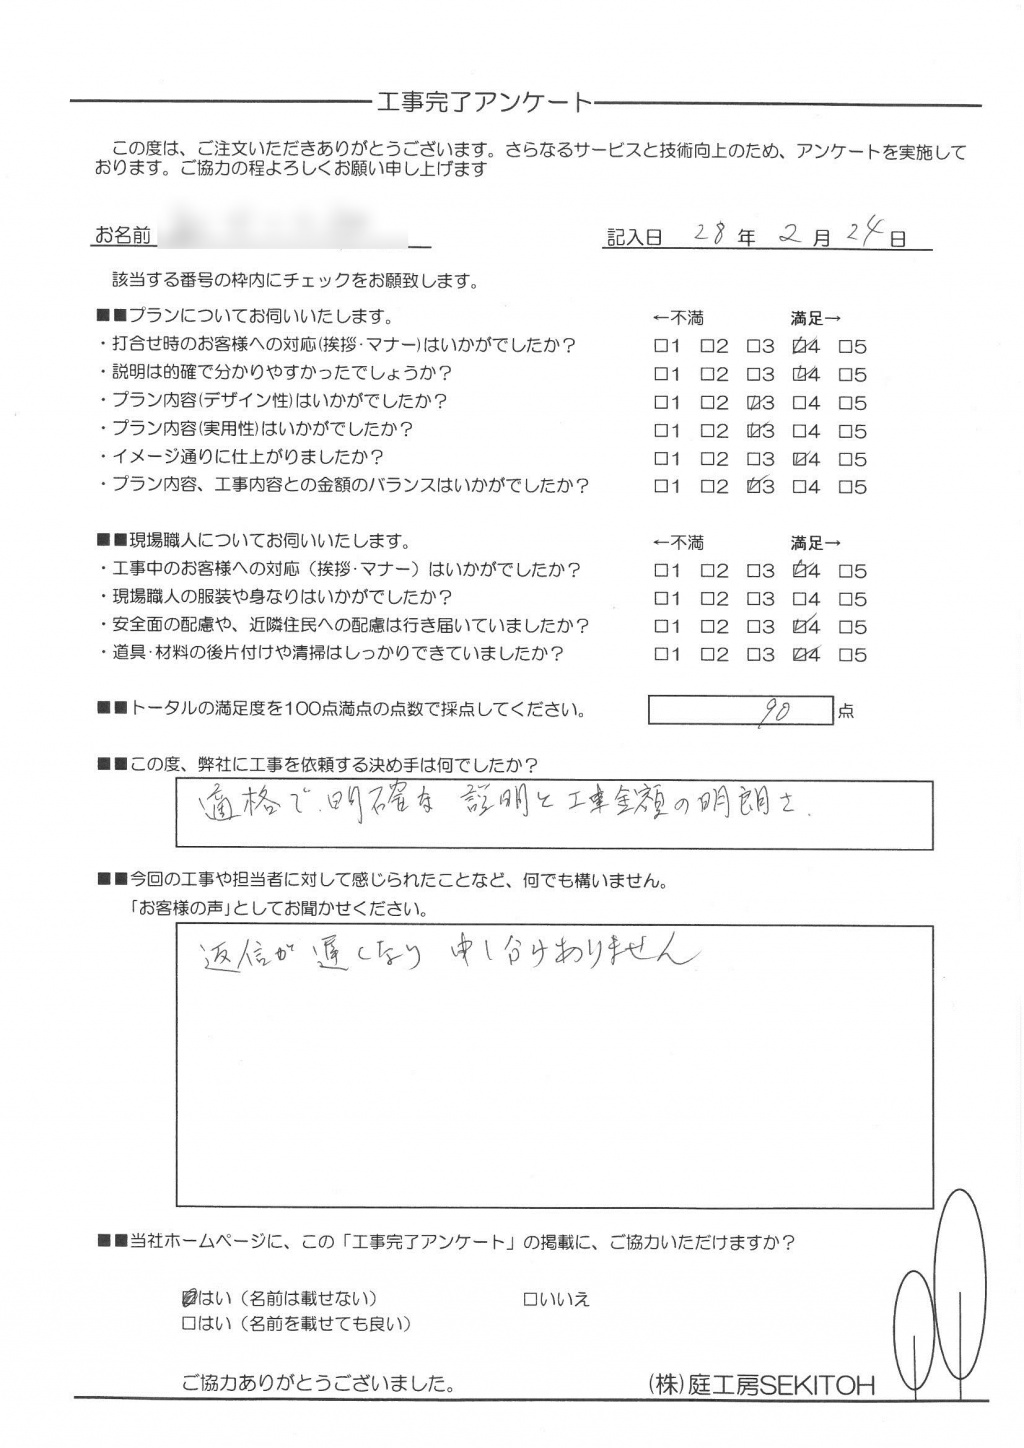 工事完了アンケート
この度は、ご注文いただきありがとうございます。さらなるサービスと技術向上のため、アンケートを実施して
おります。ご協力の程よろしくお願い申し上げます
お名前
記入日 28 年 2 月 24 日
該当する番号の枠内にチェックをお願致します。
■■プランについてお伺いいたします。 ←不満 満足→
・打合せ時のお客様への対応(挨拶・マナー)はいかがでしたか? □1 □2 □3 ☑4 □5
・説明は的確で分かりやすかったでしょうか? □1 □2 □3 ☑4 □5
・プラン内容(デザイン性)はいかがでしたか? □1 □2 ☑3 □4 □5
・プラン内容(実用性)はいかがでしたか? □1 □2 ☑3 □4 □5
・イメージ通りに仕上がりましたか? □1 □2 □3 ☑4 □5
・プラン内容、工事内容との金額のバランスはいかがでしたか? □1 □2 ☑3 □4 □5
■■現場職人についてお伺いいたします。 ←不満 満足→
・工事中のお客様への対応（挨拶・マナー）はいかがでしたか? □1 □2 □3 ☑4 □5
・現場職人の服装や身なりはいかがでしたか? □1 □2 □3 □4 □5
・安全面の配慮や、近隣住民への配慮は行き届いていましたか? □1 □2 □3 ☑4 □5
・道具・材料の後片付けや清掃はしっかりできていましたか? □1 □2 □3 ☑4 □5
■■トータルの満足度を100点満点の点数で採点してください。 90 点
■■この度、弊社に工事を依頼する決め手は何でしたか?
適格で、明確な 説明と工事金額の明朗さ.
■■今回の工事や担当者に対して感じられたことなど、何でも構いません。
「お客様の声」としてお聞かせください。
返信が遅くなり 申し分けありません
■■当社ホームページに、この「工事完了アンケート」の掲載に、ご協力いただけますか?
☑はい（名前は載せない） □いいえ
□はい（名前を載せても良い）
ご協力ありがとうございました。 (株)庭工房SEKITOH